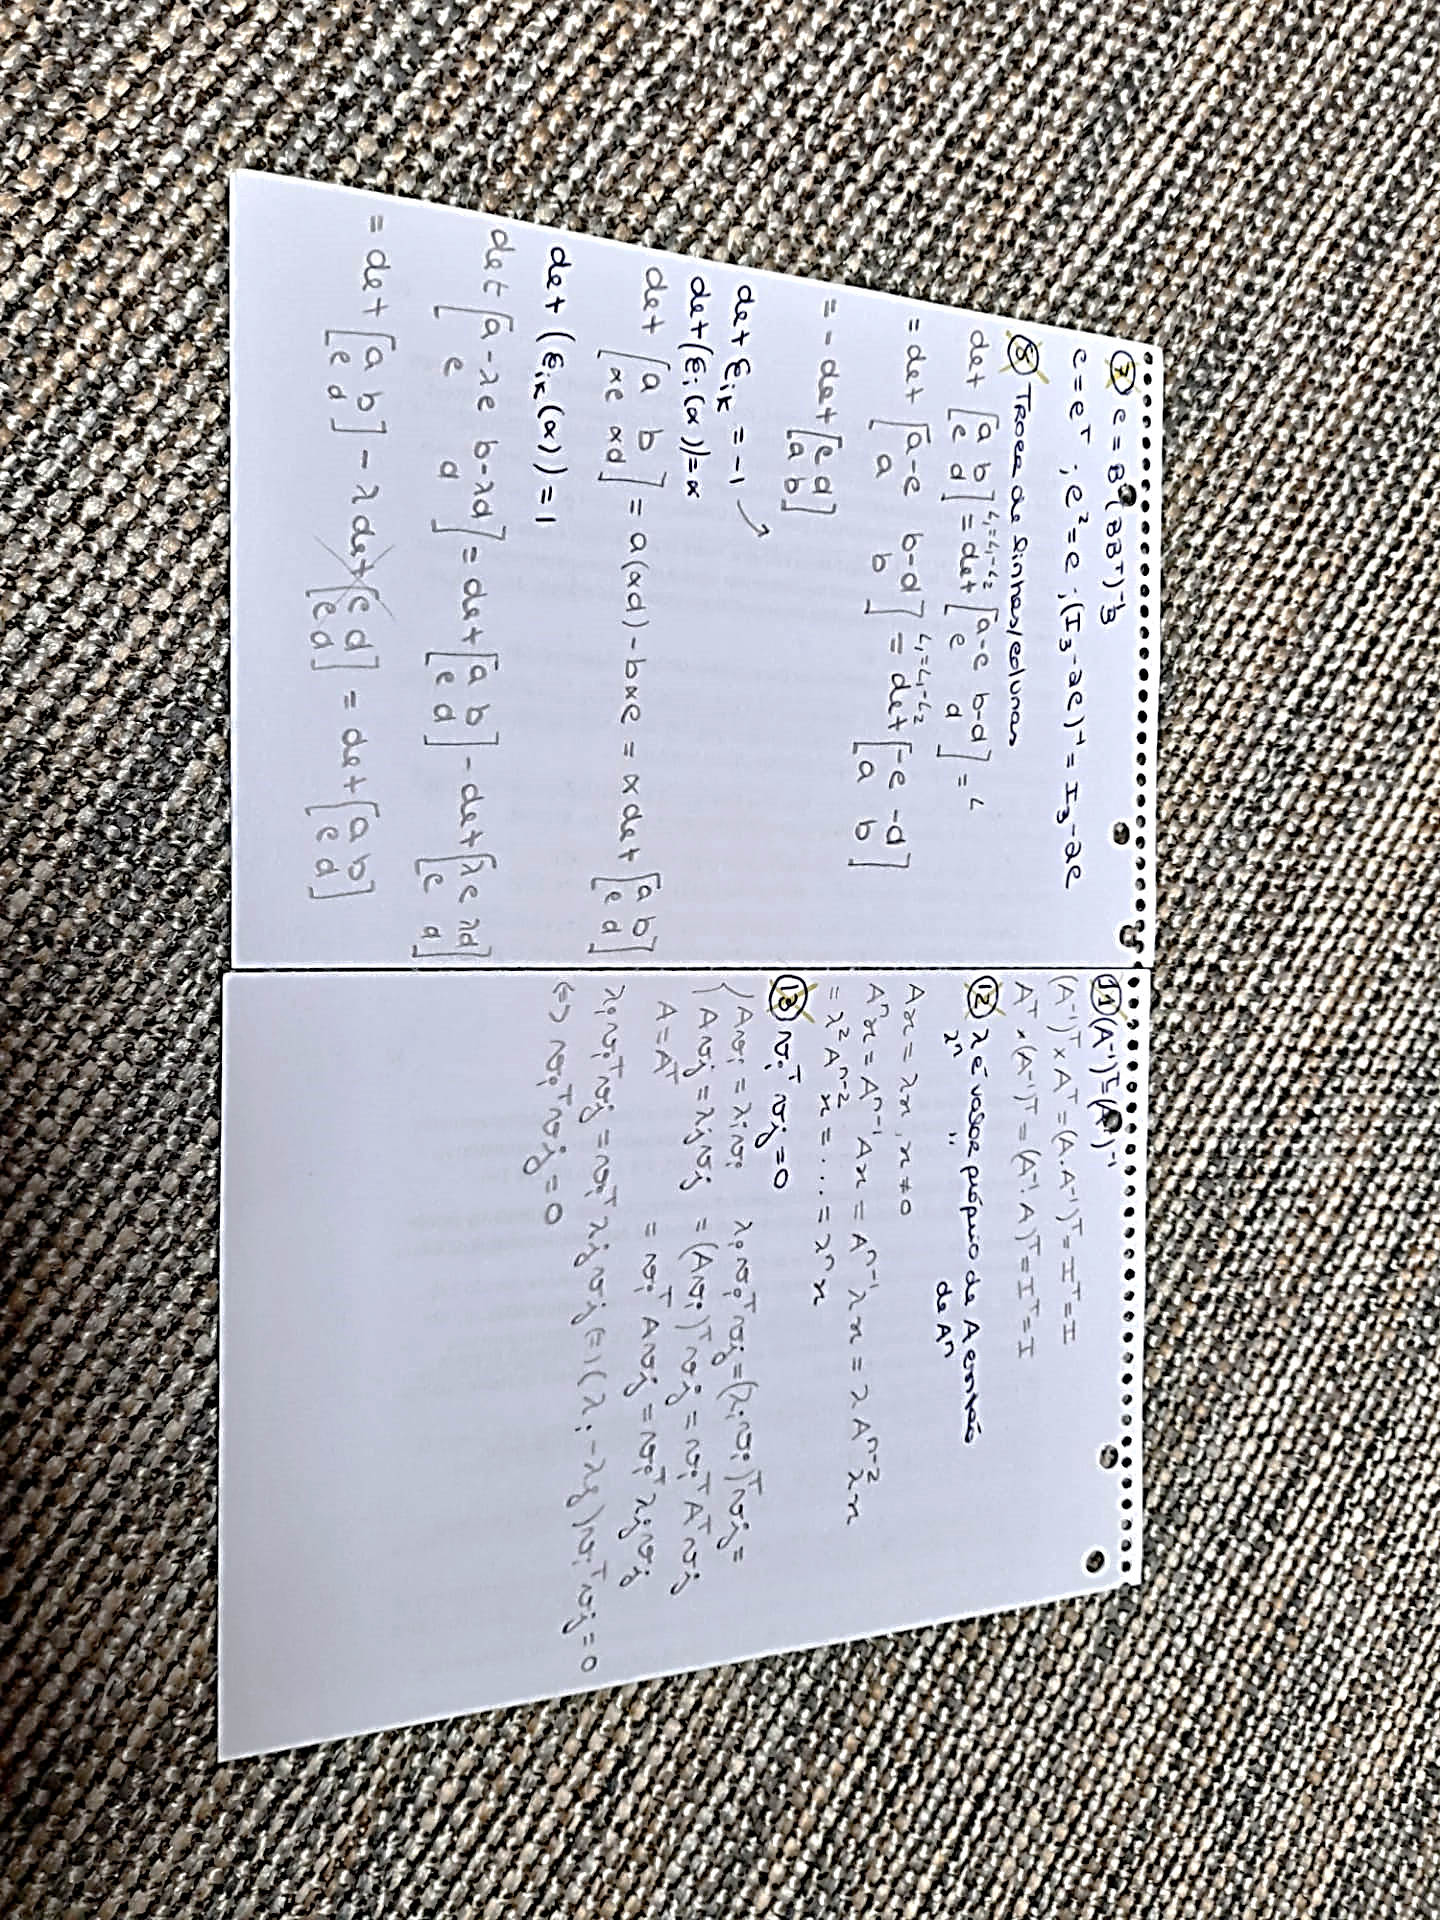 ⑦ C = Bᵀ(BBᵀ)⁻¹B
C = Cᵀ ; C² = C ; (I₃ - 2C)⁻¹ = I₃ - 2C
⑧ Troca de linhas/colunas
det [a b; c d] L₁=L₁-L₂ = det [a-c b-d; c d] = L
= det [a-c b-d; a b] L₁=L₁-L₂ = det [-c -d; a b]
= - det [c d; a b]
det Eᵢₖ = -1
det(Eᵢ(α)) = α
det [a b; αc αd] = a(αd) - bαc = α det [a b; c d]
det (Eᵢₖ(α)) = 1
det [a-λc b-λd; c d] = det [a b; c d] - det [λc λd; c d]
= det [a b; c d] - λ det [c d; c d] = det [a b; c d]
⑪ (A⁻¹)ᵀ = (Aᵀ)⁻¹
(A⁻¹)ᵀ × Aᵀ = (A.A⁻¹)ᵀ = Iᵀ = I
Aᵀ × (A⁻¹)ᵀ = (A⁻¹.A)ᵀ = Iᵀ = I
⑫ λ é valor próprio de A então
λⁿ " de Aⁿ
Ax = λx, x ≠ 0
Aⁿx = Aⁿ⁻¹Ax = Aⁿ⁻¹λx = λAⁿ⁻²λx
= λ²Aⁿ⁻²x = ... = λⁿx
⑬ vᵢᵀvⱼ = 0
{ Avᵢ = λᵢvᵢ λᵢvᵢᵀvⱼ = (λᵢvᵢ)ᵀvⱼ =
Avⱼ = λⱼvⱼ = (Avᵢ)ᵀvⱼ = vᵢᵀAᵀvⱼ
A = Aᵀ = vᵢᵀAvⱼ = vᵢᵀλⱼvⱼ
λᵢvᵢᵀvⱼ = vᵢᵀλⱼvⱼ (=) (λᵢ - λⱼ)vᵢᵀvⱼ = 0
(=) vᵢᵀvⱼ = 0